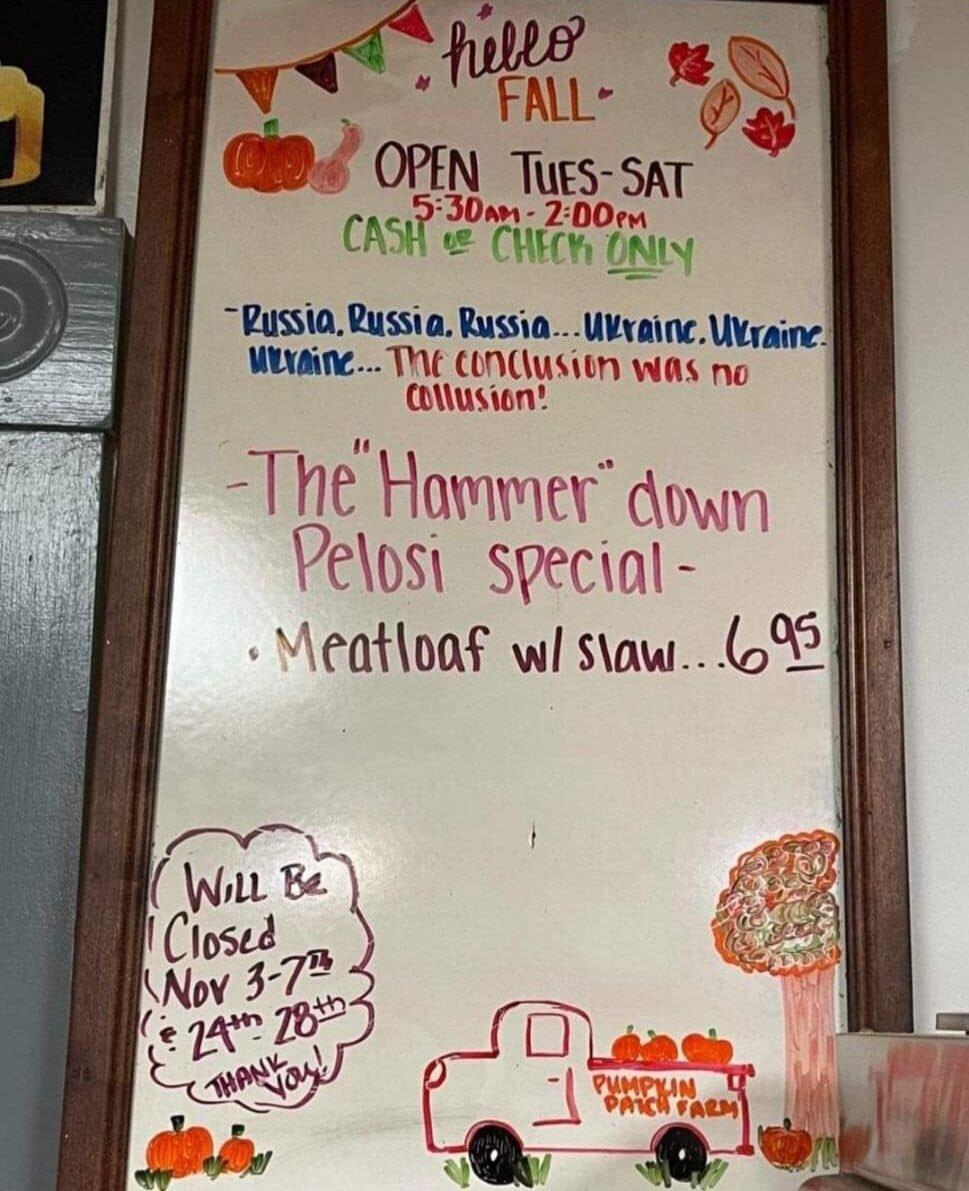 hello
FALL
OPEN TUES-SAT
5:30AM - 2:00PM
CASH or CHECK ONLY
-Russia, Russia, Russia...Ukraine, Ukraine,
Ukraine... The conclusion was no
collusion!
-The "Hammer" down
Pelosi special-
• Meatloaf w/ slaw...6 95
WILL BE
Closed
Nov 3-7th
& 24th-28th
THANK
You!
PUMPKIN
PATCH FARM